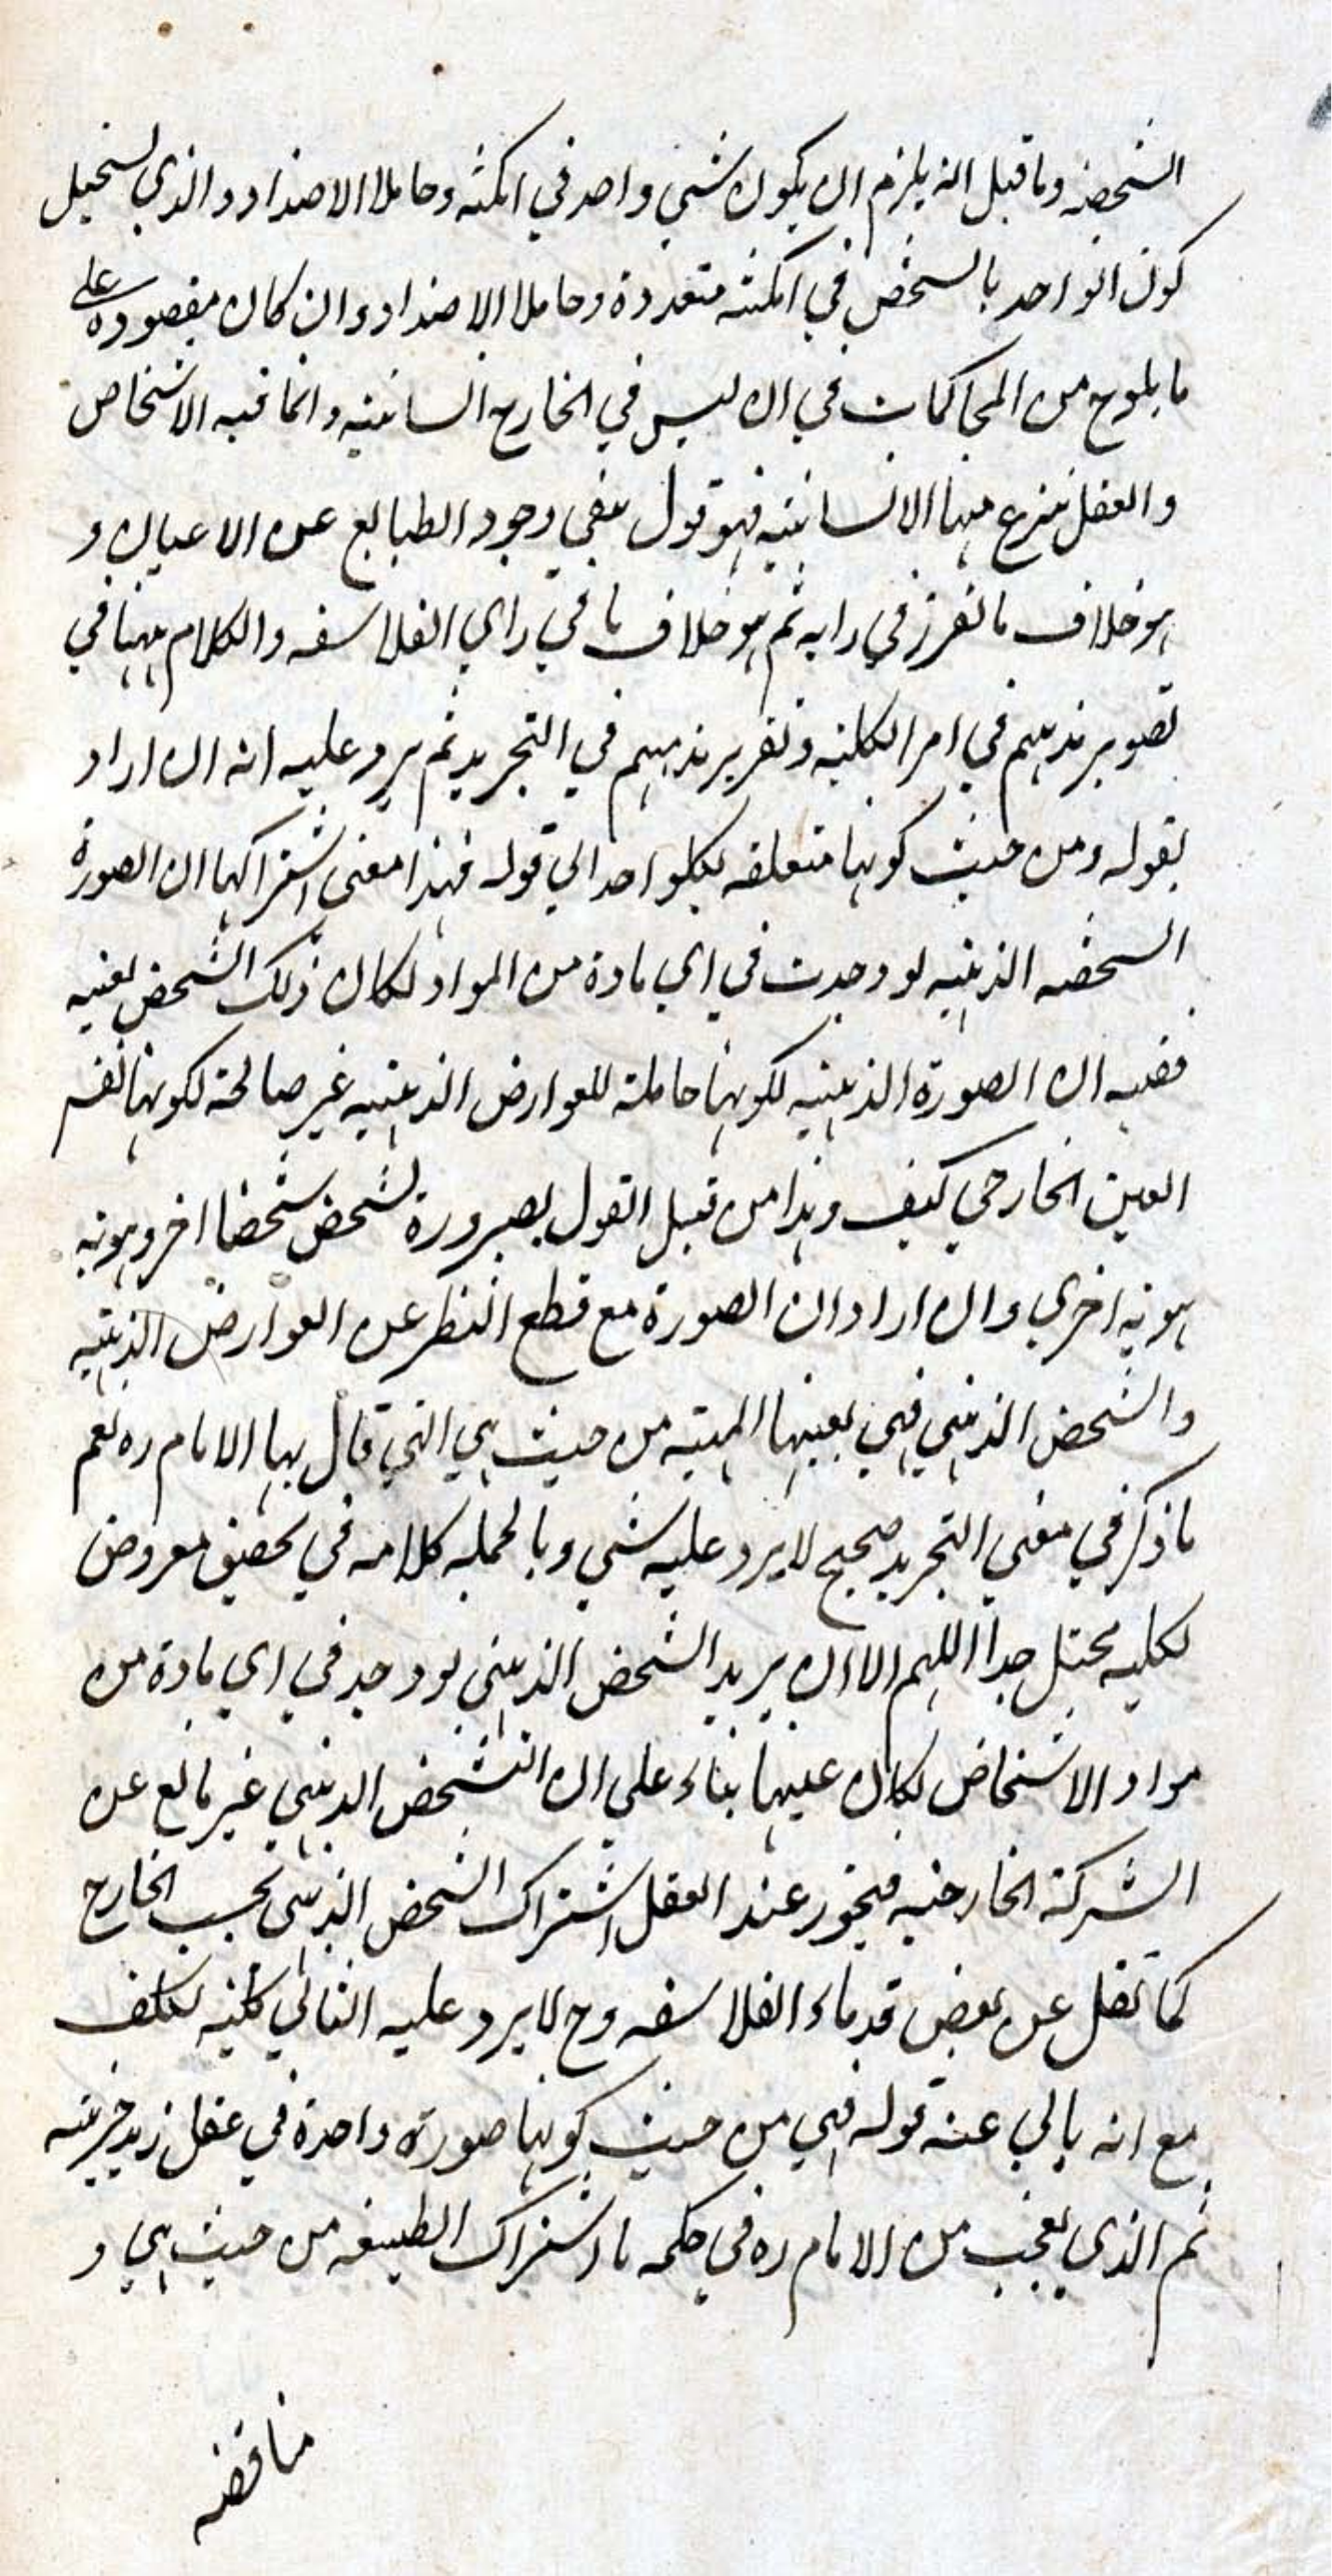 الشخصية وما قيل انه يلزم ان يكون شي واحد في امكنة وحاملا الاضداد والذي يستحيل
كون الواحد بالشخص في امكنة متعددة وحاملا الاضداد وان كان مقصوده على
ما يلوح من المحاكمات في ان ليس في الخارج انسانية وانما فيه الاشخاص
والعقل ينزع منها الانسانية فهو قول بنفي وجود الطبايع عن الاعيان و
هو خلاف ما تقرر في رايه ثم هو خلاف ما في راي الفلاسفه والكلام ههنا في
تصوير مذهبهم في امر الكلية وتقرير مذهبهم في التجريد ثم يرد عليه انه ان اراد
بقوله ومن حيث كونها متعلقه بكلواحد الي قوله فهذا معنى اشتراكها ان الصورة
الشخصه الذهنيه لو وجدت في اي مادة من المواد لكان ذلك الشخص بعينه
ففيه ان الصورة الذهنيه لكونها حاملة للعوارض الذهنيه غير صالحة لكونها نفس
العين الخارجي كيف وهذا من قبيل القول بصيرورة شخص شخصا اخر وهويه
هويه اخري وان اراد ان الصورة مع قطع النظر عن العوارض الذهنيه
والشخص الذهني فهي بعينها المهيه من حيث هي التي قال بها الامام ره نعم
ما ذكر في معني التجريد صحيح لا يرد عليه شي وبالجمله كلامه في تحقيق معروض
لكليه مختل جدا اللهم الا ان يريد الشخص الذهني لو وجد في اي مادة من
مواد الاشخاص لكان عينها بناء علي ان التشخص الذهني غير مانع عن
الشركة الخارجيه فيجوز عند العقل اشتراك الشخص الذهني بحسب الخارج
كما نقل عن بعض قدماء الفلاسفه وح لا يرد عليه الثاني لكنه تكلف
مع انه يابي عنه قوله فهي من حيث كونها صورة واحدة في عقل زيد جزئيه
ثم الذي يعجب من الامام ره في حكمه باشتراك الطبيعه من حيث هي و
مناقضه